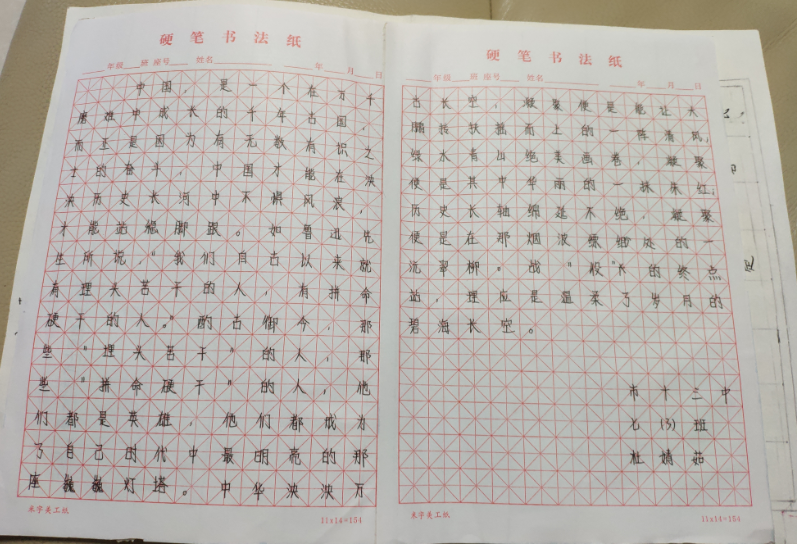 硬笔书法纸
年级 班 座号 姓名 年 月 日
中国，是一个在万千
磨难中成长的千年古国，
而正是因为有无数有识之
士的奋斗，中国才能在泱
泱历史长河中不惧风浪，
才能站稳脚跟。如鲁迅先
生所说，"我们自古以来就
有埋头苦干的人，有拼命
硬干的人。"酌古御今，那
些"埋头苦干"的人，那
些"拼命硬干"的人，他
们都是英雄，他们都成为
了自己时代中最明亮的那
座巍巍灯塔。中华泱泱万
米字美工纸
11x14=154
硬笔书法纸
年级 班 座号 姓名 年 月 日
古长空，凝聚便是能让大
鹏扶摇而上的一阵清风，
绿水青山绝美画卷，凝聚
便是其中华丽的一抹朱红，
历史长轴绵延不绝，凝聚
便是在那烟波缥缈处的一
沅翠柳。战"役"的终点
站，理应是温柔了岁月的
碧海长空。
市十三中
七(3)班
杜婧茹
米字美工纸
11x14=154